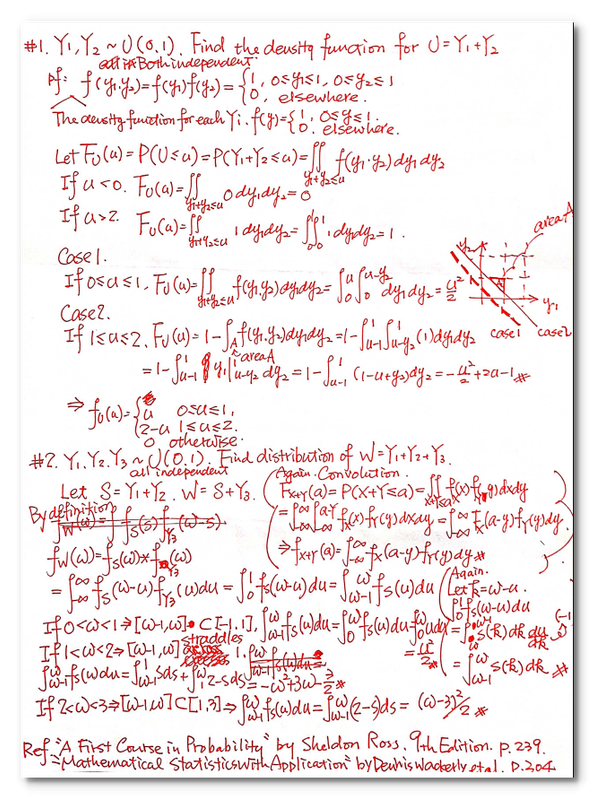 #1. Y₁, Y₂ ~ U(0,1). Find the density function for U = Y₁+Y₂
Both independent.
pf: f(y₁,y₂) = f(y₁)f(y₂) = {1, 0≤y₁≤1, 0≤y₂≤1
0, elsewhere.
The density function for each Yi. f(y) = {1, 0≤y≤1.
0. elsewhere.
Let F_U(u) = P(U≤u) = P(Y₁+Y₂≤u) = ∬_{y₁+y₂≤u} f(y₁,y₂) dy₁ dy₂
If u<0. F_U(u) = ∬_{y₁+y₂≤u} 0 dy₁ dy₂ = 0
If u>2. F_U(u) = ∬_{y₁+y₂≤u} 1 dy₁ dy₂ = ∫₀¹∫₀¹ 1 dy₁ dy₂ = 1.
area A
Case 1.
If 0≤u≤1, F_U(u) = ∬_{y₁+y₂≤u} f(y₁,y₂) dy₁ dy₂ = ∫₀^u ∫₀^{u-y₂} dy₁ dy₂ = u²/2
y₂
y₁
case 1
case 2
Case 2.
If 1≤u≤2, F_U(u) = 1 - ∫_A f(y₁,y₂) dy₁ dy₂ = 1 - ∫_{u-1}^1 ∫_{u-y₂}^1 (1) dy₁ dy₂
area A
= 1 - ∫_{u-1}^1 y₁|_{u-y₂}^1 dy₂ = 1 - ∫_{u-1}^1 (1-u+y₂) dy₂ = -u²/2 + 2u - 1 ※
⇒ f_U(u) = {u 0≤u≤1,
2-u 1≤u≤2.
0 otherwise.
#2. Y₁, Y₂, Y₃ ~ U(0,1). Find distribution of W = Y₁+Y₂+Y₃.
all independent
Let S = Y₁+Y₂. W = S+Y₃.
By definition
f_W(ω) = f_S(ω) * f_{Y₃}(ω)
= ∫_{-∞}^{∞} f_S(ω-u) f_{Y₃}(u) du = ∫₀¹ f_S(ω-u) du = ∫_{ω-1}^{ω} f_S(u) du
Again. Convolution.
F_{X+Y}(a) = P(X+Y≤a) = ∬_{x+y≤a} f_X(x) f_Y(y) dx dy
= ∫_{-∞}^{∞} ∫_{-∞}^{a-y} f_X(x) f_Y(y) dx dy = ∫_{-∞}^{∞} F_X(a-y) f_Y(y) dy.
⇒ f_{X+Y}(a) = ∫_{-∞}^{∞} f_X(a-y) f_Y(y) dy ※
Again.
Let k = ω-u.
∫₀¹ f_S(ω-u) du
= ∫_ω^{ω-1} S(k) dk du/dk (-1)
= ∫_{ω-1}^{ω} S(k) dk ※
If 0<ω<1 ⇒ [ω-1,ω] ⊂ [-1,1], ∫_{ω-1}^{ω} f_S(u) du = ∫₀^ω f_S(u) du = ∫₀^ω u du = ω²/2 ※
If 1<ω<2 ⇒ [ω-1,ω] straddles 1.
∫_{ω-1}^{ω} f_S(u) du = ∫_{ω-1}^1 s ds + ∫_1^ω 2-s ds = -ω² + 3ω - 3/2 ※
If 2<ω<3 ⇒ [ω-1,ω] ⊂ [1,3] ⇒ ∫_{ω-1}^{ω} f_S(u) du = ∫_{ω-1}^{ω} (2-s) ds = (ω-3)²/2 ※
Ref. "A First Course in Probability" by Sheldon Ross. 9th Edition. p.239.
"Mathematical Statistics with Application" by Dennis Wackerly et al. p.304